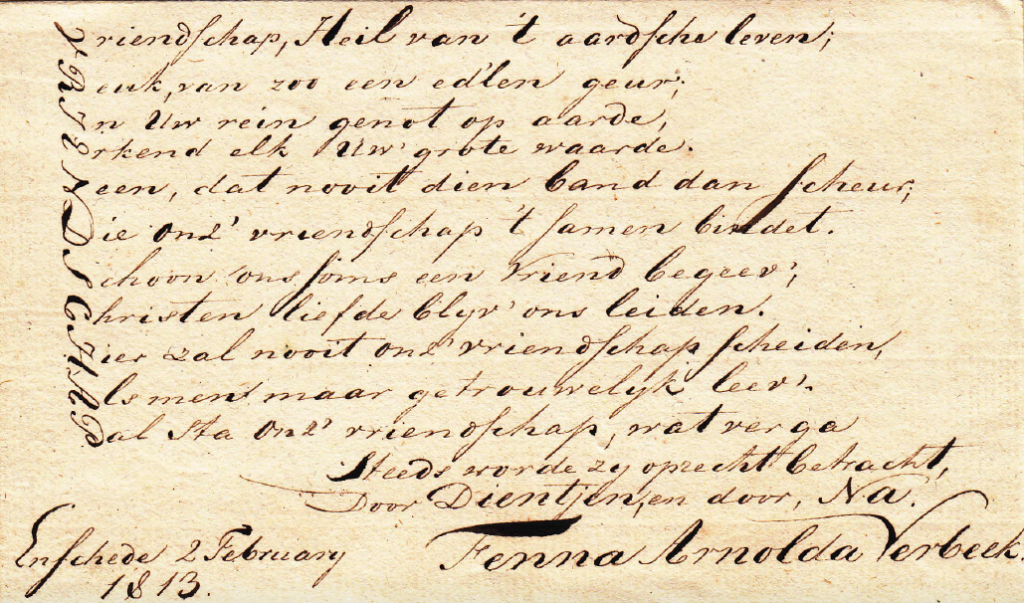 Vriendschap, Heil van 't aardsche leven;
Reuk, van zoo een ed'len geur;
In Uw rein genot op aarde,
Erkend elk Uw' grote waarde.
Neen, dat nooit dien band dan scheur;
Die onz' vriendschap 't samen bindet.
Schoon ons soms een Vriend begeev';
Christen liefde blyv' ons leiden.
Hier zal nooit onz' vriendschap scheiden,
Als men maar getrouwelyk leev'.
Pal sta onz' vriendschap, wat verga
Steeds worde zy oprecht betracht,
Door Dientjen, en door, Na.
Enschede 2 February
1813.
Fenna Arnolda Verbeek.